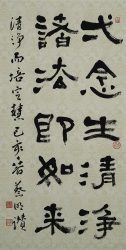 弌念生清淨
諸法即如来
清淨而培己亥春蔡明讚